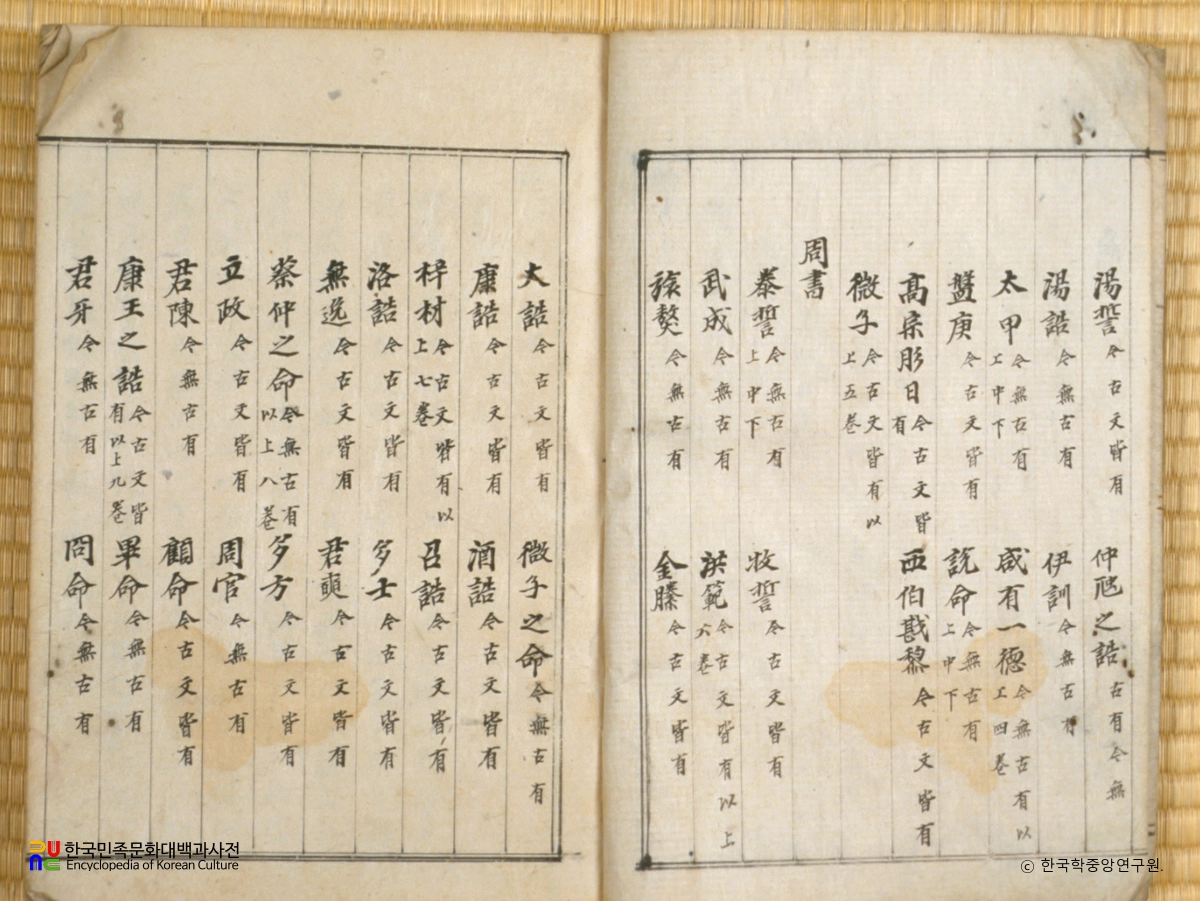 湯誓 今古文皆有 仲虺之誥 古有今無
湯誥 今無古有 伊訓 今無古有
太甲上中下 今無古有 咸有一德 今無古有以上四卷
盤庚 今古文皆有 說命上中下 今無古有
高宗肜日 今古文皆有 西伯戡黎 今古文皆有
微子 今古文皆有以上五卷
周書
泰誓上中下 今無古有 牧誓 今古文皆有
武成 今無古有 洪範 今古文皆有以上六卷
旅獒 今無古有 金縢 今古文皆有
大誥 今古文皆有 微子之命 今無古有
康誥 今古文皆有 酒誥 今古文皆有
梓材 今古文皆有以上七卷 召誥 今古文皆有
洛誥 今古文皆有 多士 今古文皆有
無逸 今古文皆有 君奭 今古文皆有
蔡仲之命 今無古有以上八卷 多方 今古文皆有
立政 今古文皆有 周官 今無古有
君陳 今無古有 顧命 今古文皆有
康王之誥 今古文皆有以上九卷 畢命 今無古有
君牙 今無古有 冏命 今無古有
한국민족문화대백과사전
Encyclopedia of Korean Culture
ⓒ 한국학중앙연구원.